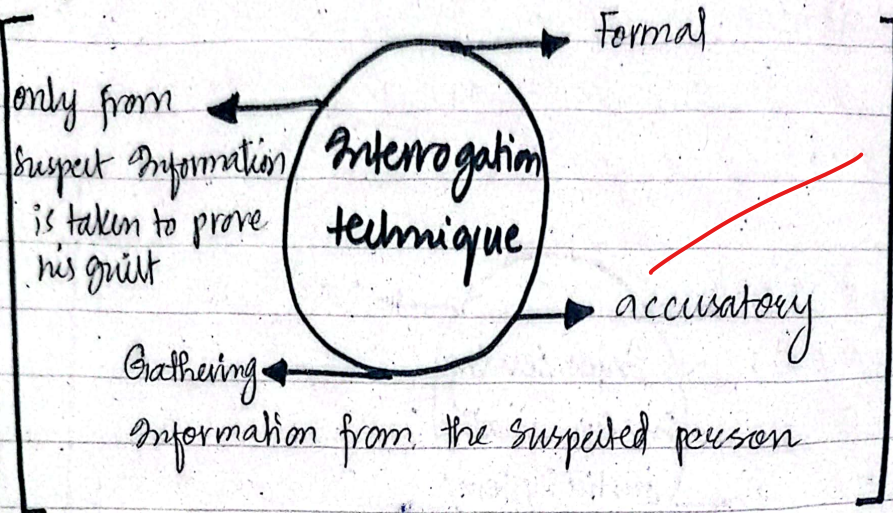 Formal
only from
suspect Information
is taken to prove
his guilt
Interrogation
technique
accusatory
Gathering
Information from the suspected person